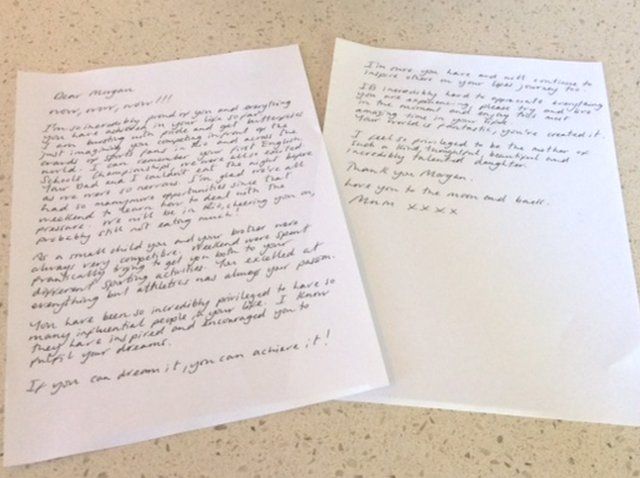 Dear Morgan
wow, wow, wow!!!
I'm so incredibly proud of you and everything
you have achieved in your life so far.
I am bursting with pride and get butterflies
just imagining you competing infront of the
crowds of sports fans in Rio and across the
world. I can remember your first English
Schools Championships, we were all so excited.
Your Dad and I couldn't eat the night before
as we were so nervous. I'm glad we've all
had so many more opportunities since that
weekend to learn how to deal with the
pressure. We will be in Rio, cheering you on,
probably still not eating much!
As a small child you and your brother were
always very competitive. Weekend were spent
frantically trying to get you both to your
different sporting activities. You excelled at
everything but athletics was always your passion.
You have been so incredibly privileged to have so
many influential people in your life. I know
they have inspired and encouraged you to
fulfil your dreams.
If you can dream it, you can achieve it!
I'm sure you have and will continue to
inspire others on your life's journey too.
It's incredibly hard to appreciate everything
you are experiencing, please try and live
in the moment and enjoy this most
amazing time in your life.
Your world is fantastic, you've created it.
I feel so privileged to be the mother of
such a kind, thoughtful, beautiful and
incredibly talented daughter.
Thank you Morgan.
Love you to the moon and back.
Mum xxxx